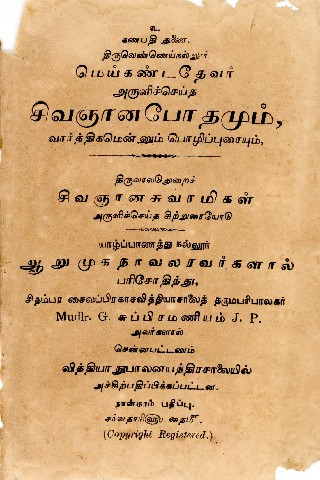 உ
கணபதி துணை.
திருவெண்ணெய்நல்லூர்
மெய்கண்டதேவர்
அருளிச்செய்த
சிவஞானபோதமும்,
வார்த்திகமென்னும் பொழிப்புரையும்,
திருவாவடுதுறைச்
சிவஞானசுவாமிகள்
அருளிச்செய்த சிற்றுரையோடு
யாழ்ப்பாணத்து நல்லூர்
ஆறுமுகநாவலரவர்களால்
பரிசோதித்து,
சிதம்பர சைவப்பிரகாசவித்தியாசாலைத் தருமபரிபாலகர்
Mudlr. G. சுப்பிரமணியம் J. P.
அவர்களால்
சென்னபட்டணம்
வித்தியாநுபாலனயந்திரசாலையில்
அச்சிற்பதிப்பிக்கப்பட்டன.
நான்காம் பதிப்பு.
தைமீ
(Copyright Registered.)